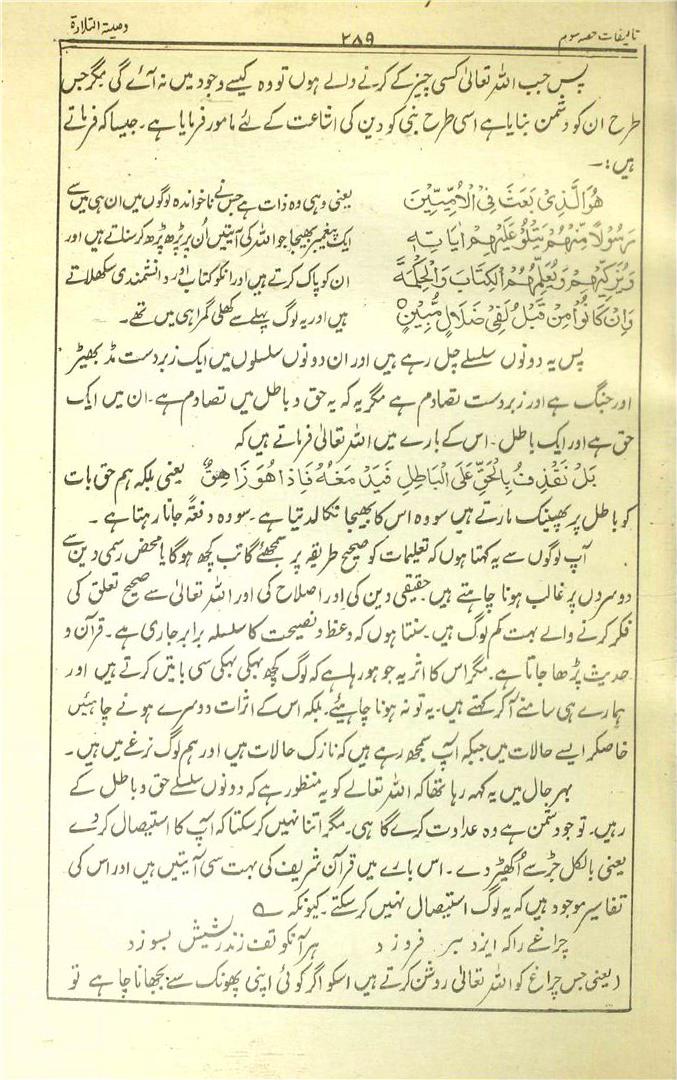 تالیفات حصہ سوم ۲۸۹ وصیۃ التلاوۃ
پس جب اللہ تعالیٰ کسی چیز کے کرنے والے ہوں تو وہ کیسے وجود میں نہ آئے گی مگر جس
طرح ان کو دشمن بنایا ہے اسی طرح نبی کو دین کی اشاعت کے لئے مامور فرمایا ہے۔ جیسا کہ فرماتے
ہیں:۔
هُوَ الَّذِىْ بَعَثَ فِى الْاُمِّيِّيْنَ
رَسُوْلًا مِّنْهُمْ يَتْلُوْ عَلَيْهِمْ اٰيَاتِهٖ
وَيُزَكِّيْهِمْ وَيُعَلِّمُهُمُ الْكِتَابَ وَالْحِكْمَةَ
وَاِنْ كَانُوْا مِنْ قَبْلُ لَفِىْ ضَلَالٍ مُّبِيْنٍ
یعنی وہی وہ ذات ہے جس نے ناخواندہ لوگوں میں ان ہی میں سے
ایک پیغمبر بھیجا جو اللہ کی آیتیں اُن پر پڑھ پڑھ کر سناتے ہیں اور
ان کو پاک کرتے ہیں اور انکو کتاب اور دانشمندی سکھلاتے
ہیں اور یہ لوگ پہلے سے کھلی گمراہی میں تھے۔
پس یہ دونوں سلسلے چل رہے ہیں اور ان دونوں سلسلوں میں ایک زبردست مڈبھیڑ
اور جنگ ہے اور زبردست تصادم ہے مگر یہ کہ یہ حق و باطل میں تصادم ہے۔ ان میں ایک
حق ہے اور ایک باطل۔ اس کے بارے میں اللہ تعالیٰ فرماتے ہیں کہ
بَلْ نَقْذِفُ بِالْحَقِّ عَلَى الْبَاطِلِ فَيَدْمَغُهٗ فَاِذَا هُوَ زَاهِقٌ یعنی بلکہ ہم حق بات
کو باطل پر پھینک مارتے ہیں سو وہ اس کا بھیجا نکالدیتا ہے۔ سو وہ دفعۃً جاتا رہتا ہے۔
آپ لوگوں سے یہ کہتا ہوں کہ تعلیمات کو صحیح طریقہ پر سمجھئے گا تب کچھ ہوگا یا محض رسمی دین سے
دوسروں پر غالب ہونا چاہتے ہیں حقیقی دین کی اور اصلاح کی اور اللہ تعالیٰ سے صحیح تعلق کی
فکر کرنے والے بہت کم لوگ ہیں۔ سنتا ہوں کہ وعظ و نصیحت کا سلسلہ برابر جاری ہے۔ قرآن و
حدیث پڑھا جاتا ہے۔ مگر اس کا اثر یہ جو ہو رہا ہے کہ لوگ کچھ بہکی بہکی سی باتیں کرتے ہیں اور
ہمارے ہی سامنے آکر کہتے ہیں۔ یہ تو نہ ہونا چاہیئے۔ بلکہ اس کے اثرات دوسرے ہونے چاہئیں
خاصکر ایسے حالات میں جبکہ آپ سمجھ رہے ہیں کہ نازک حالات ہیں اور ہم لوگ نرغے میں ہیں۔
بہر حال میں یہ کہہ رہا تھا کہ اللہ تعالےٰ کو یہ منظور ہے کہ دونوں سلسلے حق و باطل کے
رہیں۔ تو جو دشمن ہے وہ عداوت کرے گا ہی۔ مگر اتنا نہیں کر سکتا کہ آپ کا استیصال کر دے
یعنی بالکل جڑ سے اُکھیڑ دے۔ اس بارے میں قرآن شریف کی بہت سی آیتیں ہیں اور اس کی
تفاسیر موجود ہیں کہ یہ لوگ استیصال نہیں کر سکتے۔ کیونکہ ؎
چراغے را کہ ایزد بر فروزد ہر آنکو تف زند ریشش بسوزد
(یعنی جس چراغ کو اللہ تعالیٰ روشن کرتے ہیں اسکو اگر کوئی اپنی پھونک سے بجھانا چاہے تو